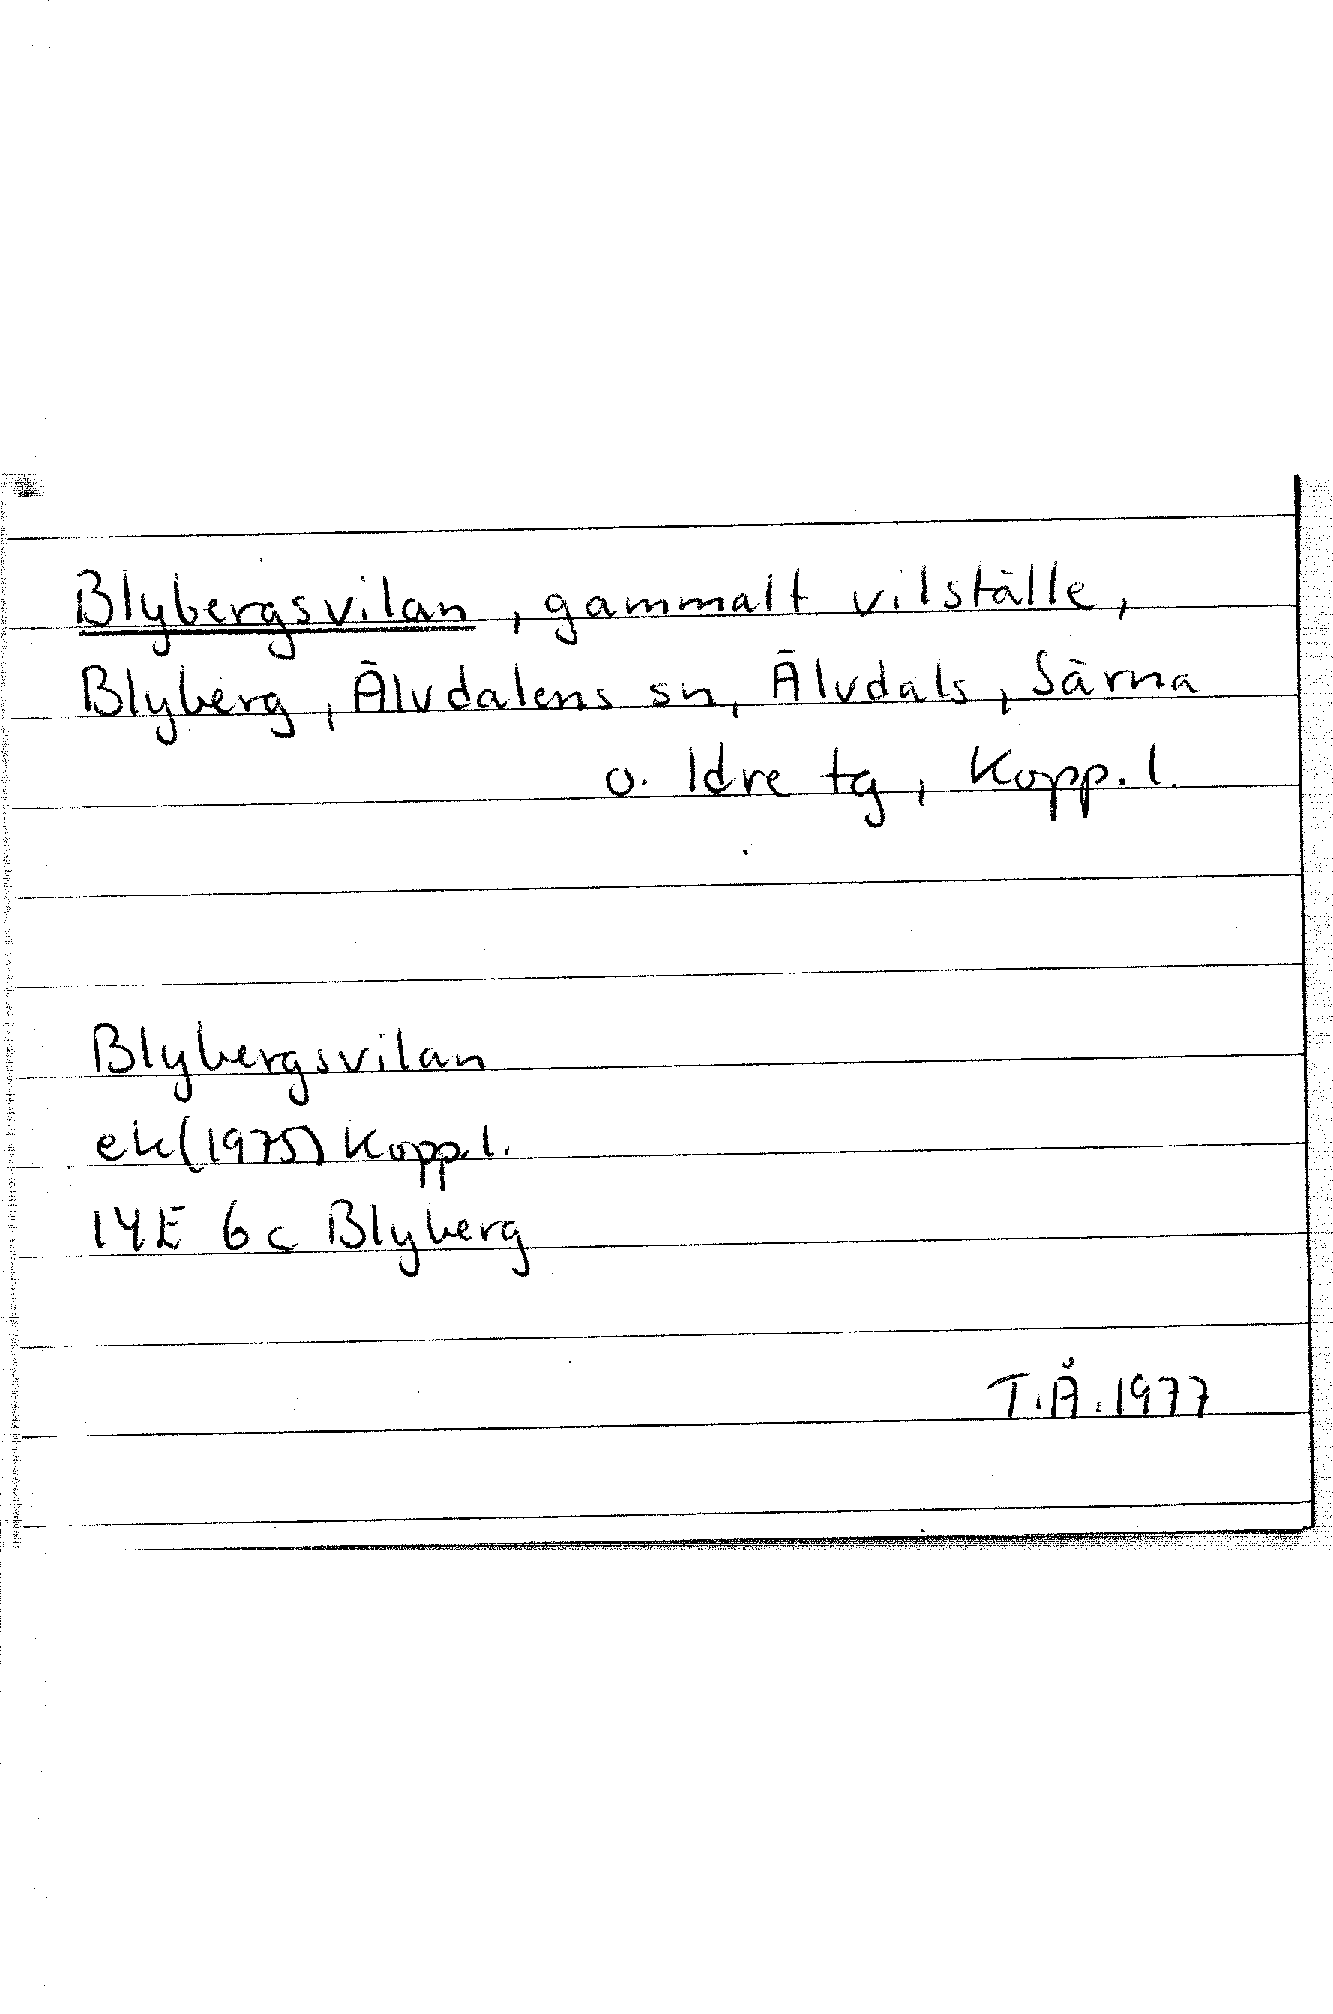 Blybergsvilan, gammalt vilställe,
Blyberg, Älvdalens sn, Älvdals, Särna
o. Idre tg, Kopp. l.
Blybergsvilan
ek (1975) Kopp. l.
14E 6c Blyberg
T.Å. 1977